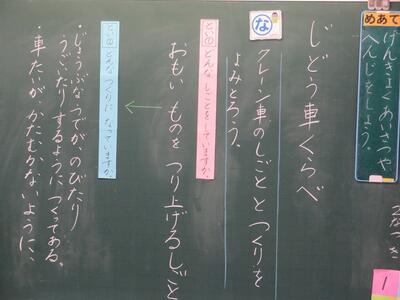 めあて
げんきよくあいさつや
へんじをしよう。
じどう車くらべ
な
クレーン車のしごととつくりを
よみとろう。
とい① どんなしごとをしていますか。
おもい ものを つり上げるしごと
とい② どんなつくりになっていますか。
・じょうぶなうでが、のびたり
うごいたりするようにつくってある。
・車たいが、かたむかないように、
1